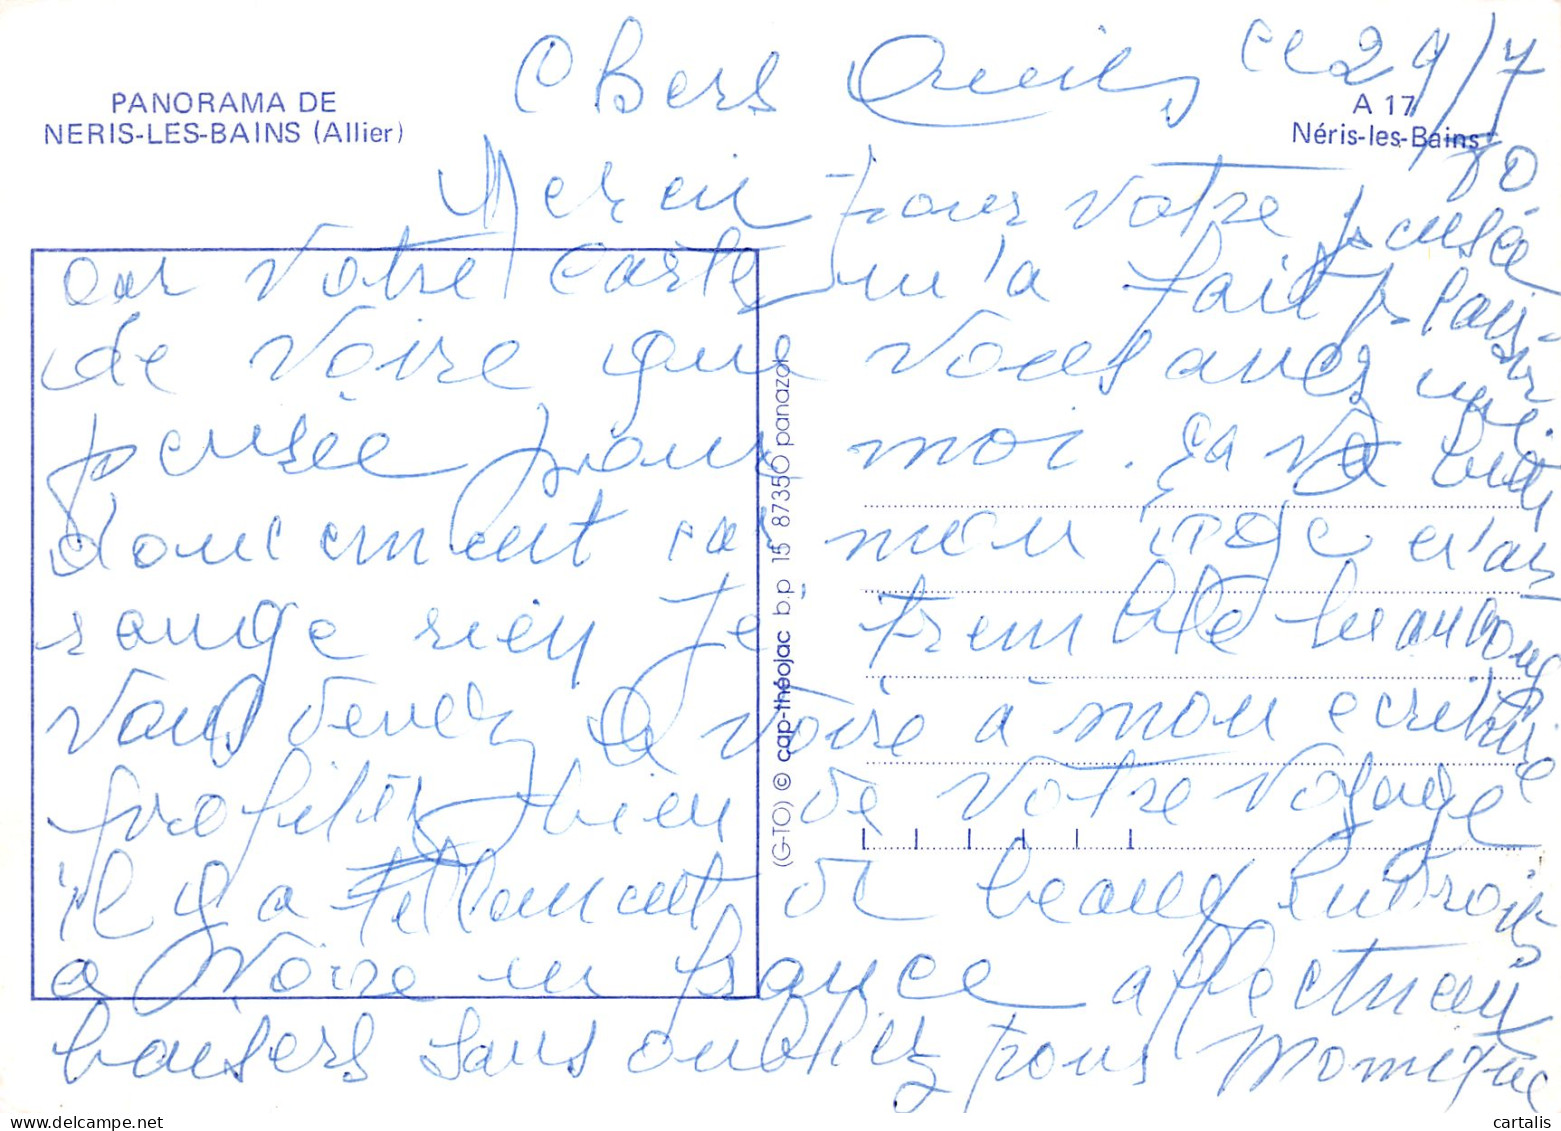 PANORAMA DE
NERIS-LES-BAINS (Allier)
A 17
Néris-les-Bains
Chers Amies ce 29/7
Merci pour votre pensée
car votre carte m'a fait plaisir
de voire que vous avez une
pensée pour moi. Ca va tout
doucement car mon âge n'ar
range rien Je tremble beaucoup
vous verrez a voire à mon écriture
profiter bien de votre voyage
il y a tellement de beaux endroits
a voire en france affectueux
baisers sans oublier
Monique
(G-TO) © cap-théojac b.p 15 87350 panazol
cartalis